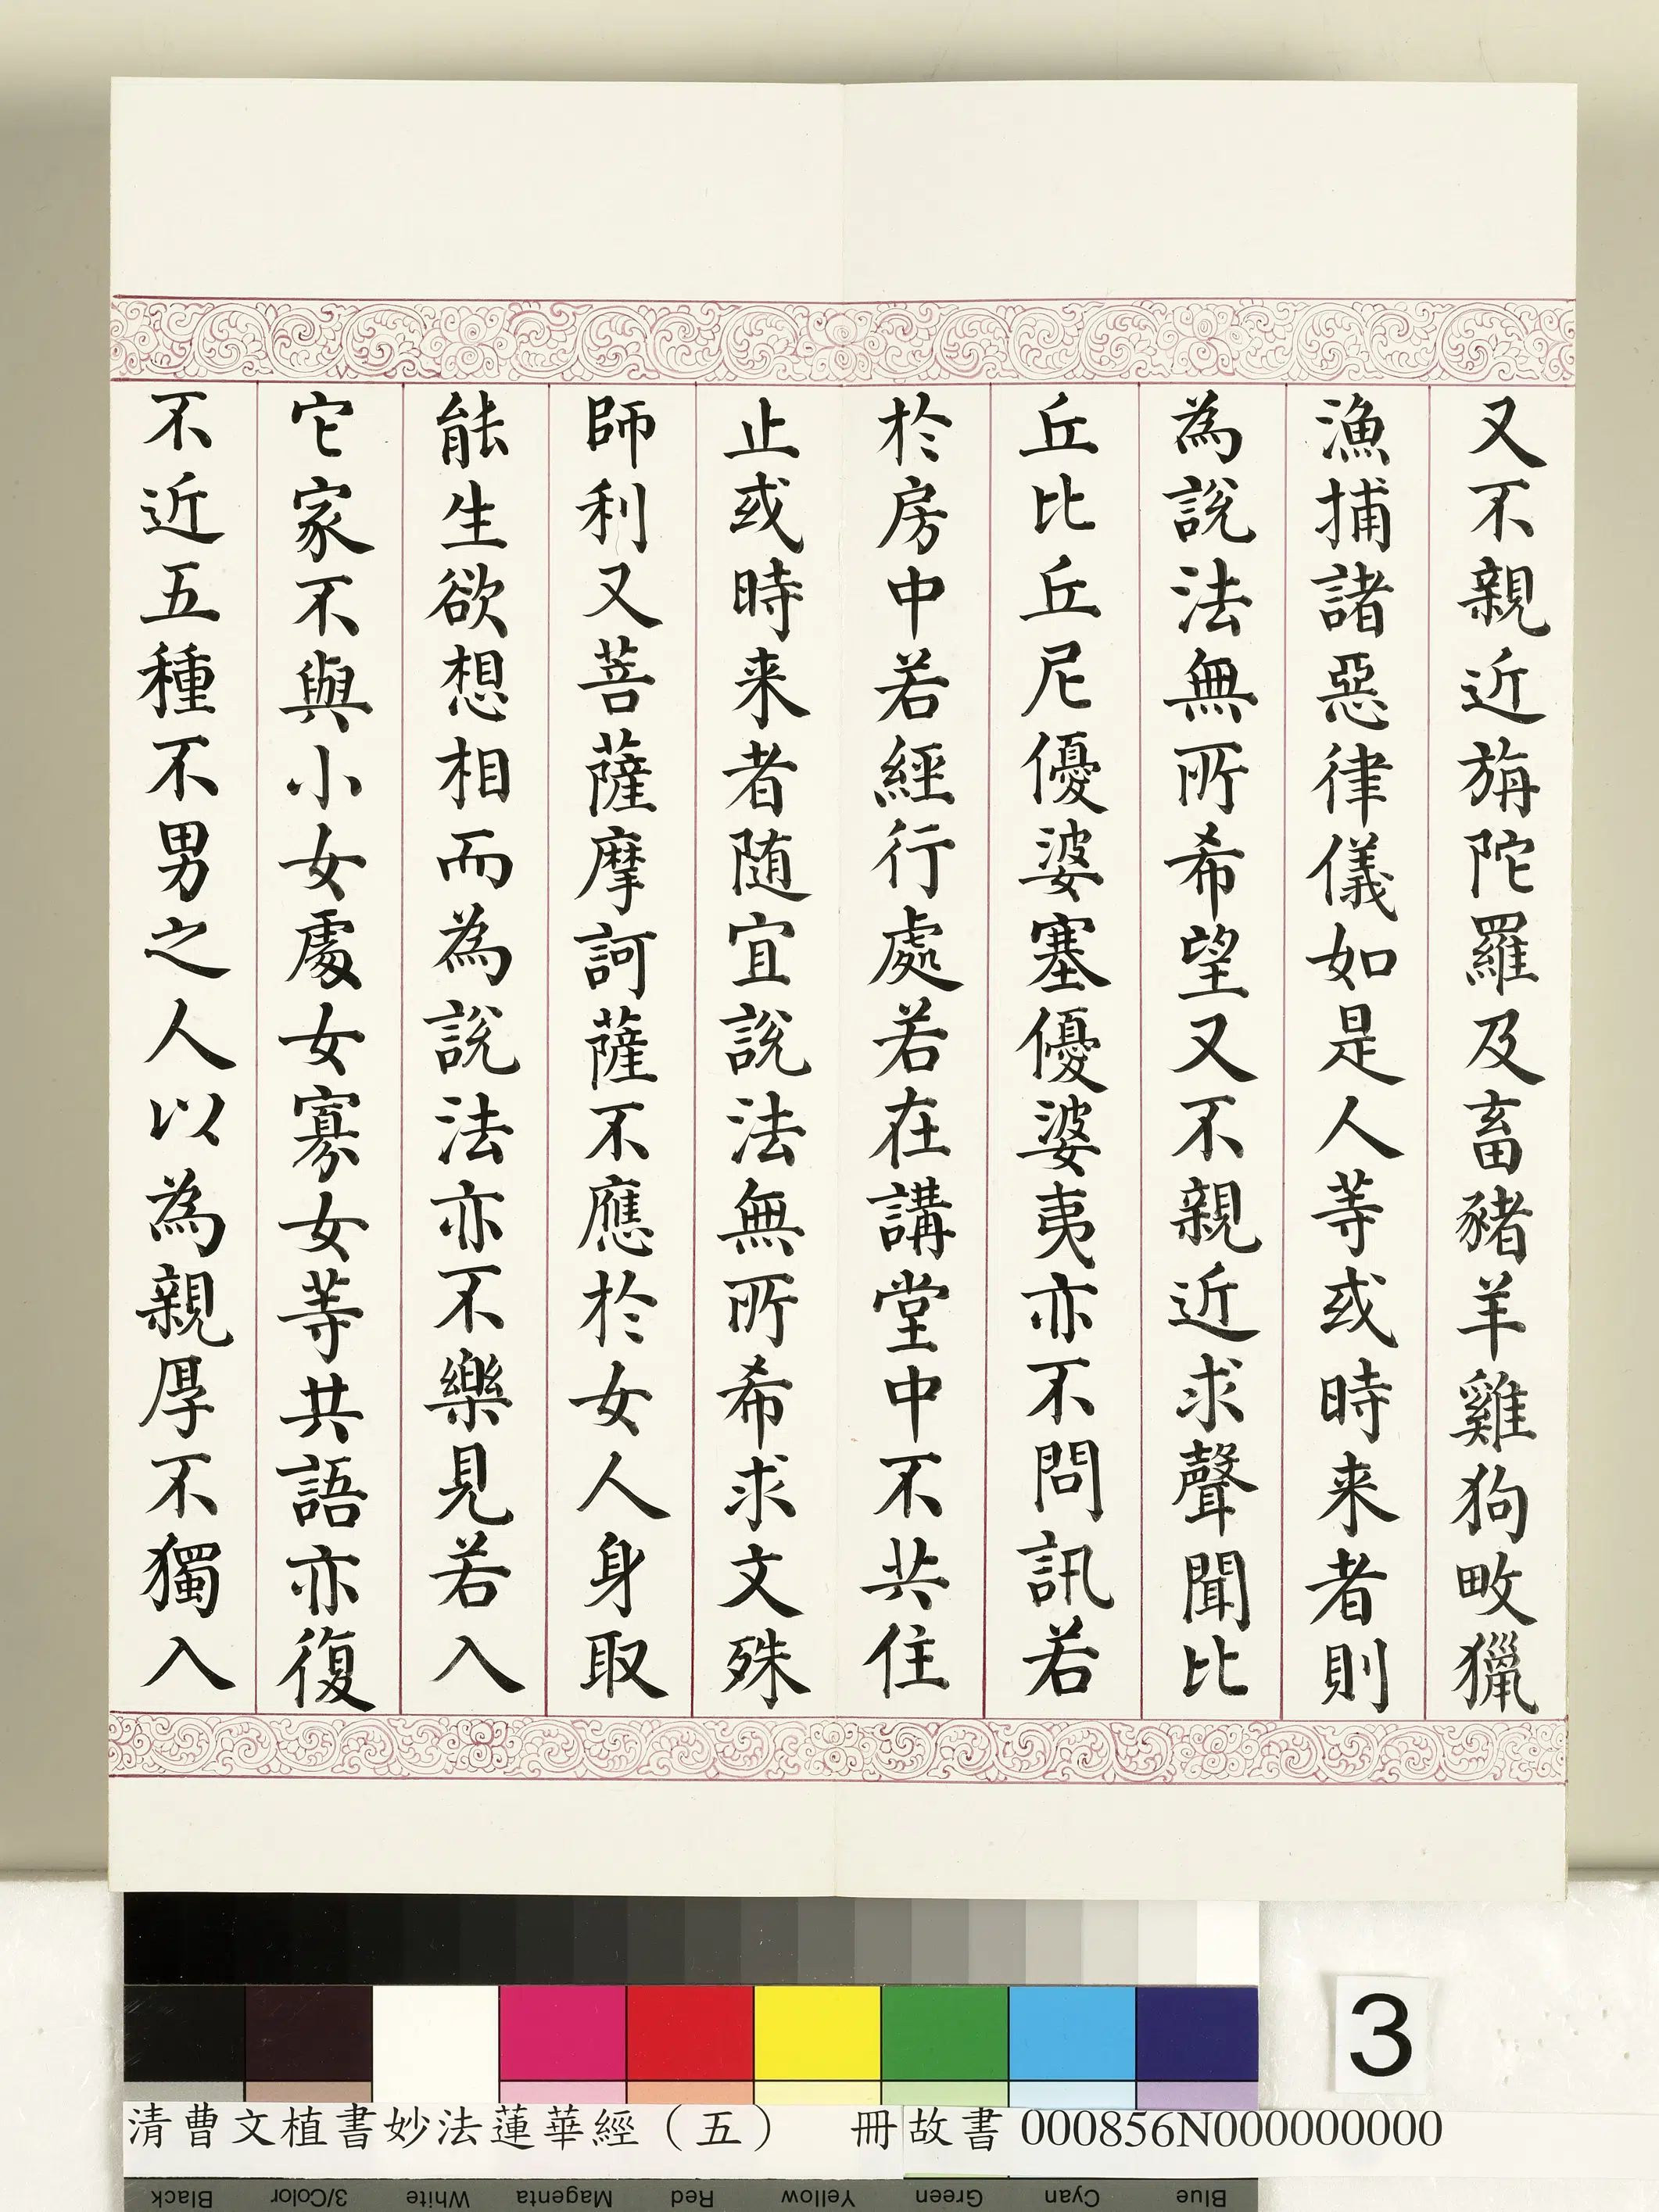 又不親近旃陀羅及畜豬羊雞狗畋獵
漁捕諸惡律儀如是人等或時来者則
為說法無所希望又不親近求聲聞比
丘比丘尼優婆塞優婆夷亦不問訊若
於房中若經行處若在講堂中不共住
止或時来者随宜說法無所希求文殊
師利又菩薩摩訶薩不應於女人身取
能生欲想相而為說法亦不樂見若入
它家不與小女處女寡女等共語亦復
不近五種不男之人以為親厚不獨入
3
清曹文植書妙法蓮華經（五） 冊故書 000856N000000000
Black 3/Color White Magenta Red Yellow Green Cyan Blue